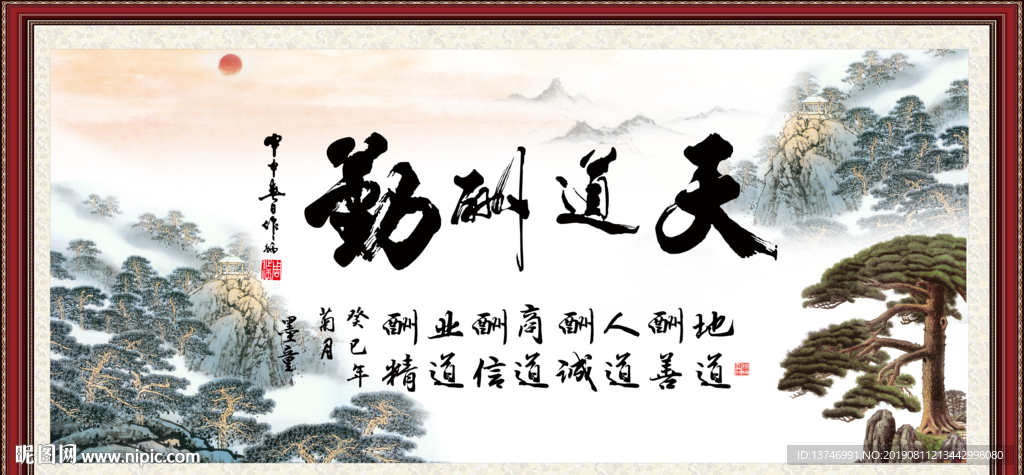 天道酬勤
甲申春日
地道
酬善
人道
酬诚
商道
酬信
业道
酬精
癸巳年
菊月
墨童
昵图网 www.nipic.com
ID:13746991,NO:20190811213442998080